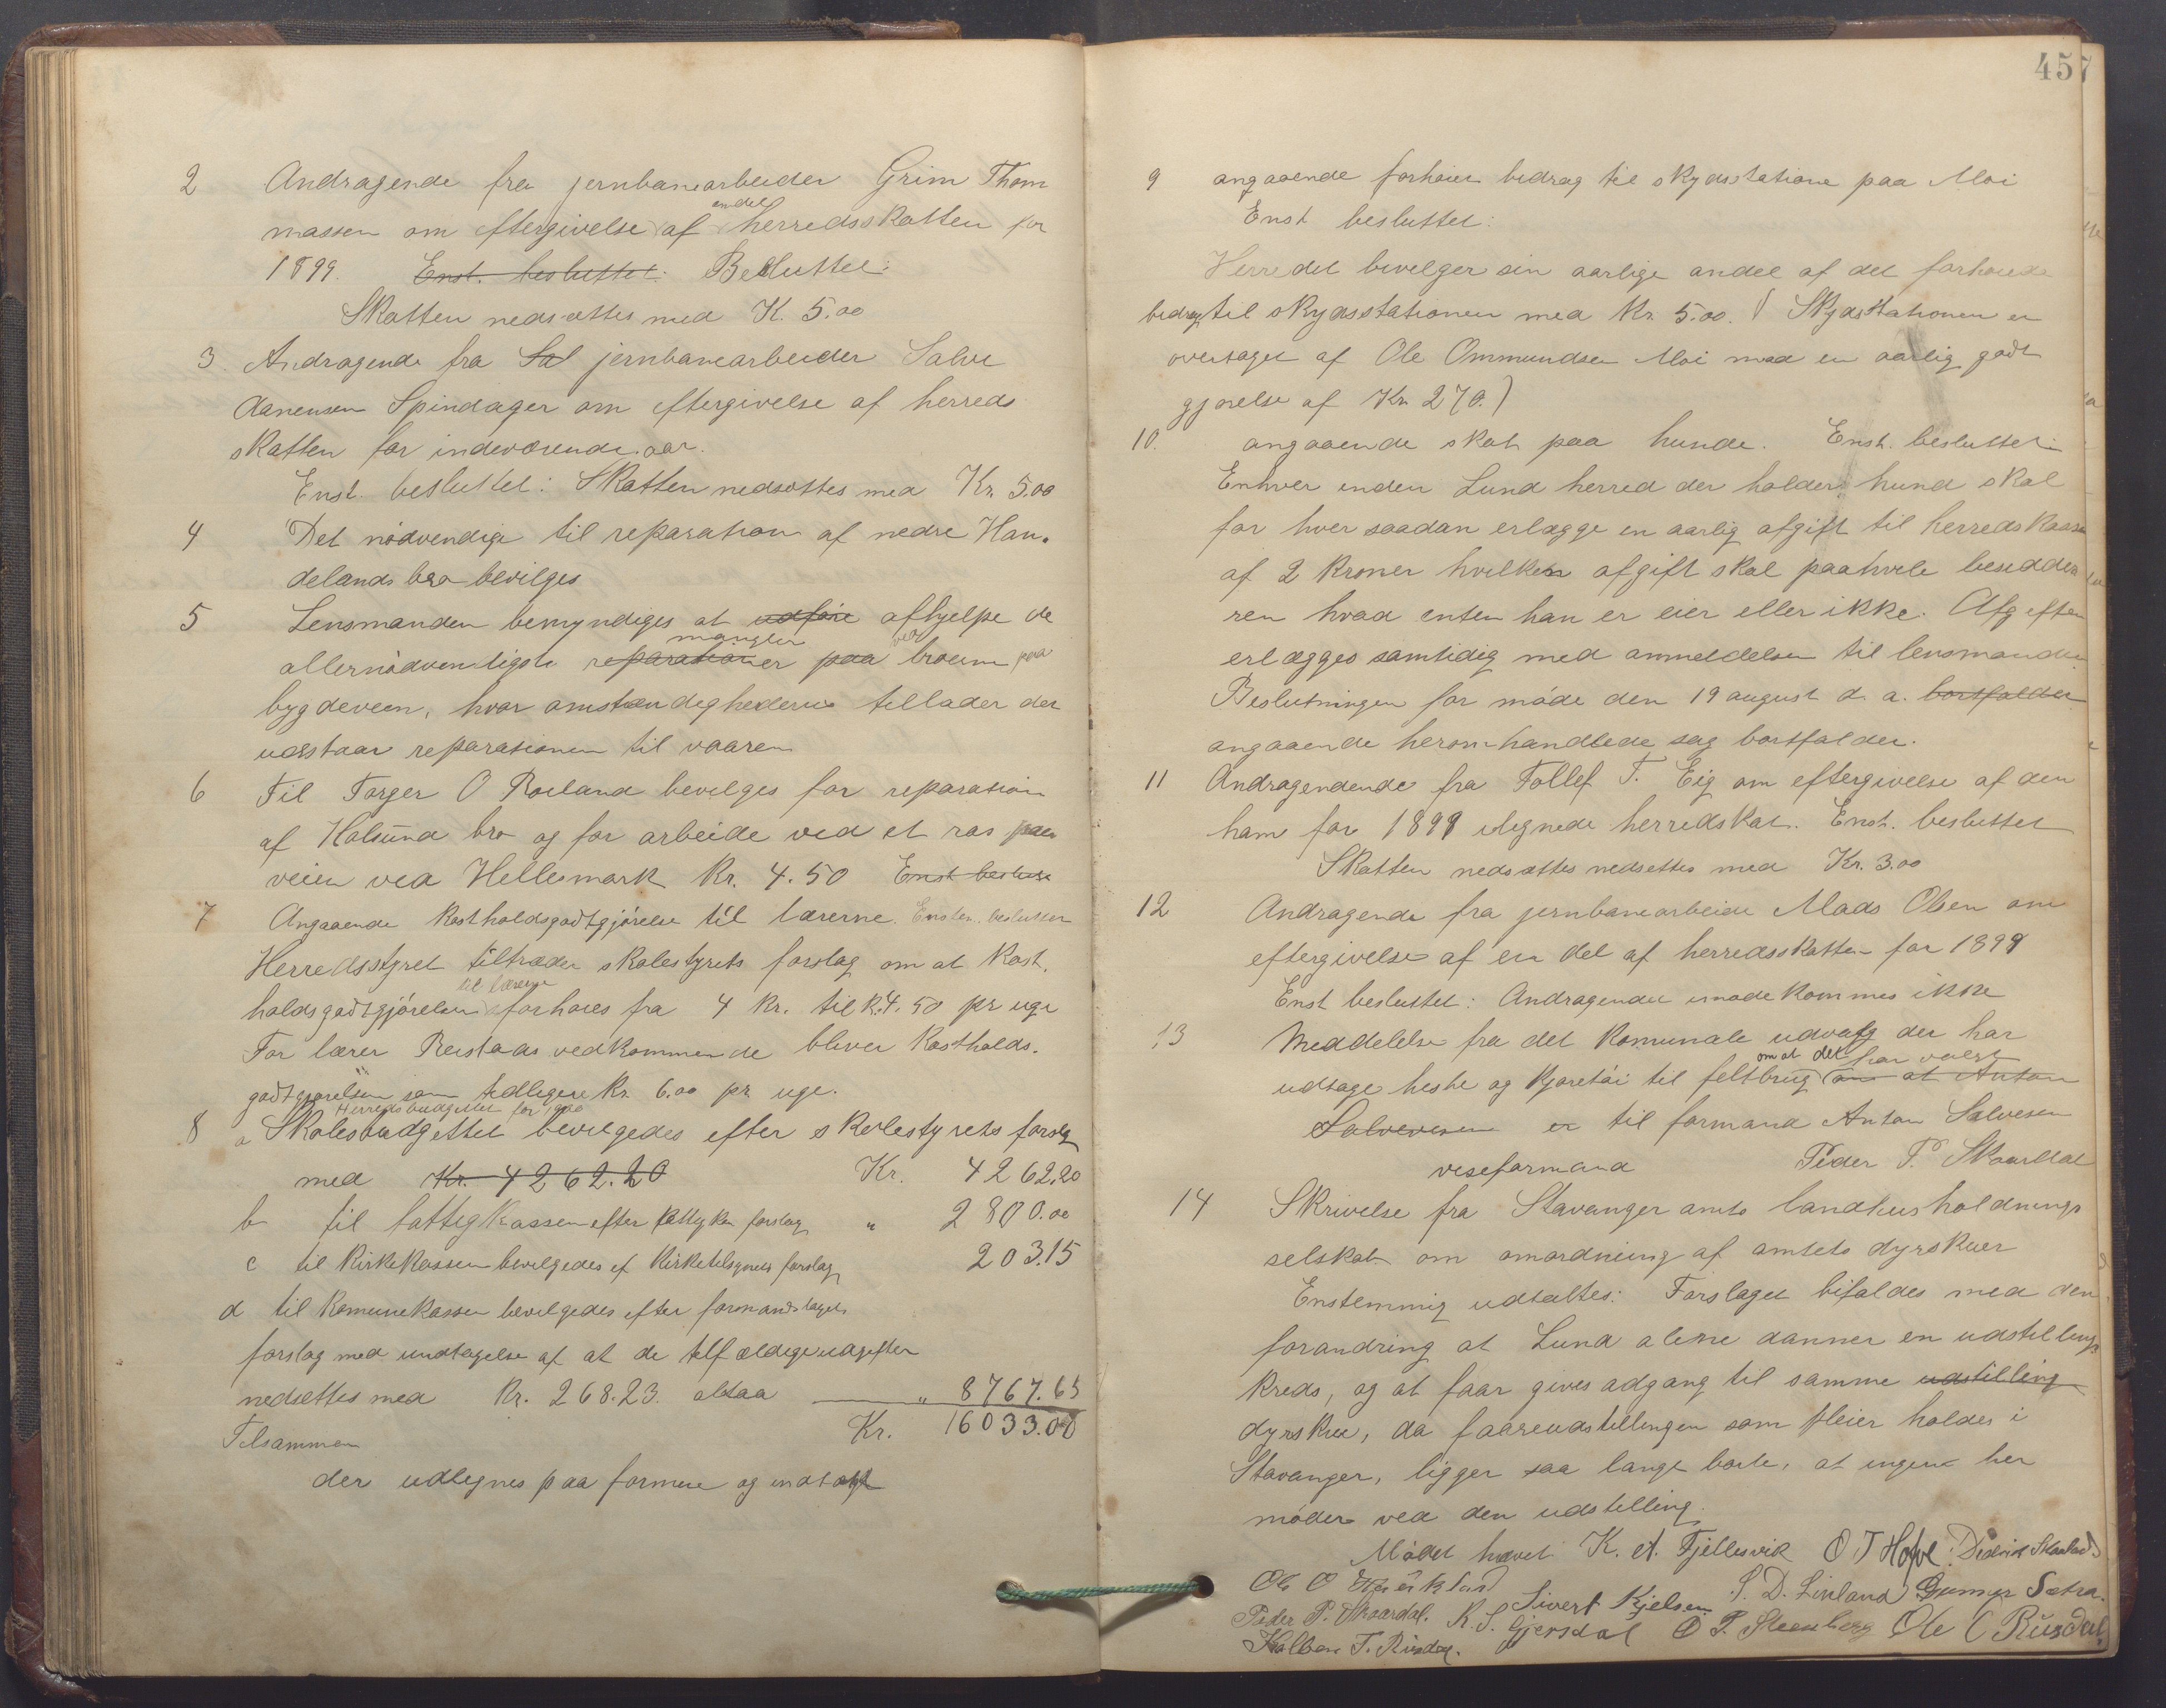 2 Andragende fra jernbanearbeider Grim Thom
massen om eftergivelse af endel herredsskatten for
1899. Enst. besluttet: Besluttet:
Skatten nedsættes med K. 5.00
3. Andragende fra Sal jernbanearbeider Salve
Aanensen Spindager om eftergivelse af herreds
skatten for indeværende aar.
Enst. besluttet: Skatten nedsættes med Kr. 5.00
4 Det nödvendige til reparation af nedre Hau-
delands bro bevilges
5 Lensmanden bemyndiges at udföre afhjelpe de
allernödvendigste reparationer mangler paa ved broerne paa
bygdeveien, hvor omstændighederne tillader det
udstaar reparationen til vaaren
6 Til Torger O Roeland bevilges for reparasion
af Holsund bro og for arbeide ved et ras paa
veien ved Hellesmark Kr. 4.50 Enst besluttet
7 Angaaende Kostholdsgodtgjörelse til lærerne. Enstem. besluttet
Herredsstyret tiltræder skolestyrets forslag om at Kost.
holdsgodtgjörelsen til lærerne forhöies fra 4 Kr. til K. 4.50 pr uge
For lærer Reistads vedkommende bliver Kostholds.
godtgjörelsen som tidligere Kr. 6.00 pr uge.
Herredsbudgettet for 1900
8 a Skolesbudgettet bevilgedes efter skolestyrets forslag
med Kr. 4262.20 Kr. 4262,20
b til fattigkassen efter fattigkom forslag " 2800.00
c til Kirkekassen bevilgedes ef Kirketilsynets forslag 203.15
d til Komunekassen bevilgedes efter formandskapets
forslag med undtagelse af at de tilfældige udgifter
nedsættes med Kr. 268.23. altsaa " 8767.65
Tilsammen Kr. 16033.00
der udlignes paa formue og indtægt
457
9 angaaende forhöiet bidrag til skydsstatione paa Moi
Enst besluttet:
Herredet bevilger sin aarlige andel af det forhöiede
bidrag til skydsstationen med Kr. 5.00. (Skydsstationen er
overtaget af Ole Ommundsen Moi med en aarlig godt
gjörelse af Kr 270.)
10. angaaende skat paa hunde. Enst. besluttet:
Enhver inden Lund herred der holder hund skal
for hver saadan erlægge en aarlig afgift til herredskassen
af 2 Kroner hvilken afgift skal paahvile besidde
ren hvad enten han er eier eller ikke. Afgiften
erlægges samtidig med anmeldelsen til lensmanden
Beslutningen for möde den 19 august d. a. bortfalder
angaaende heromhandlede sag bortfalder.
11 Andragendende fra Tollef T. Eig om eftergivelse af den
ham for 1899 ilignede herredskat. Enst. besluttet
Skatten nedsættes nedsettes med Kr. 3.00
12 Andragende fra jernbanearbeide Mads Olsen om
eftergivelse af en del af herredsskatten for 1899
Enst besluttet: Andragendet imödekommes ikke
13 Meddelelse fra det Komunale udvalg der har
udtage heste og Kjöretöi til feltbrug om at det har valgt om at Anton
Salvesen er til formand Anton Salvesen
viseformand Peder P. Skaardal
14 Skrivelse fra Stavanger amts landhusholdnings
selskab om omordning af amtets dyrskuer
Enstemmig udtaltes: Forslaget bifaldes med den
forandring at Lund alene danner en udstillings
Kreds, og at faar gives adgang til samme udstilling
dyrsKue, da faareudstillingen som pleier holdes i
Stavanger, ligger saa langt borte, at ingen her
möder ved den udstilling.
Mödet hævet K. A. Fjellesvik O T Hove. Didrik Skaaland
Ole O S. D. Linland Gunner Sætra.
Peder P. Skaardal. Sivert Kjelsen
R. S. Gjersdal O P. Steenberg Ole C Rusdal.
Kolben T. Rusdal.